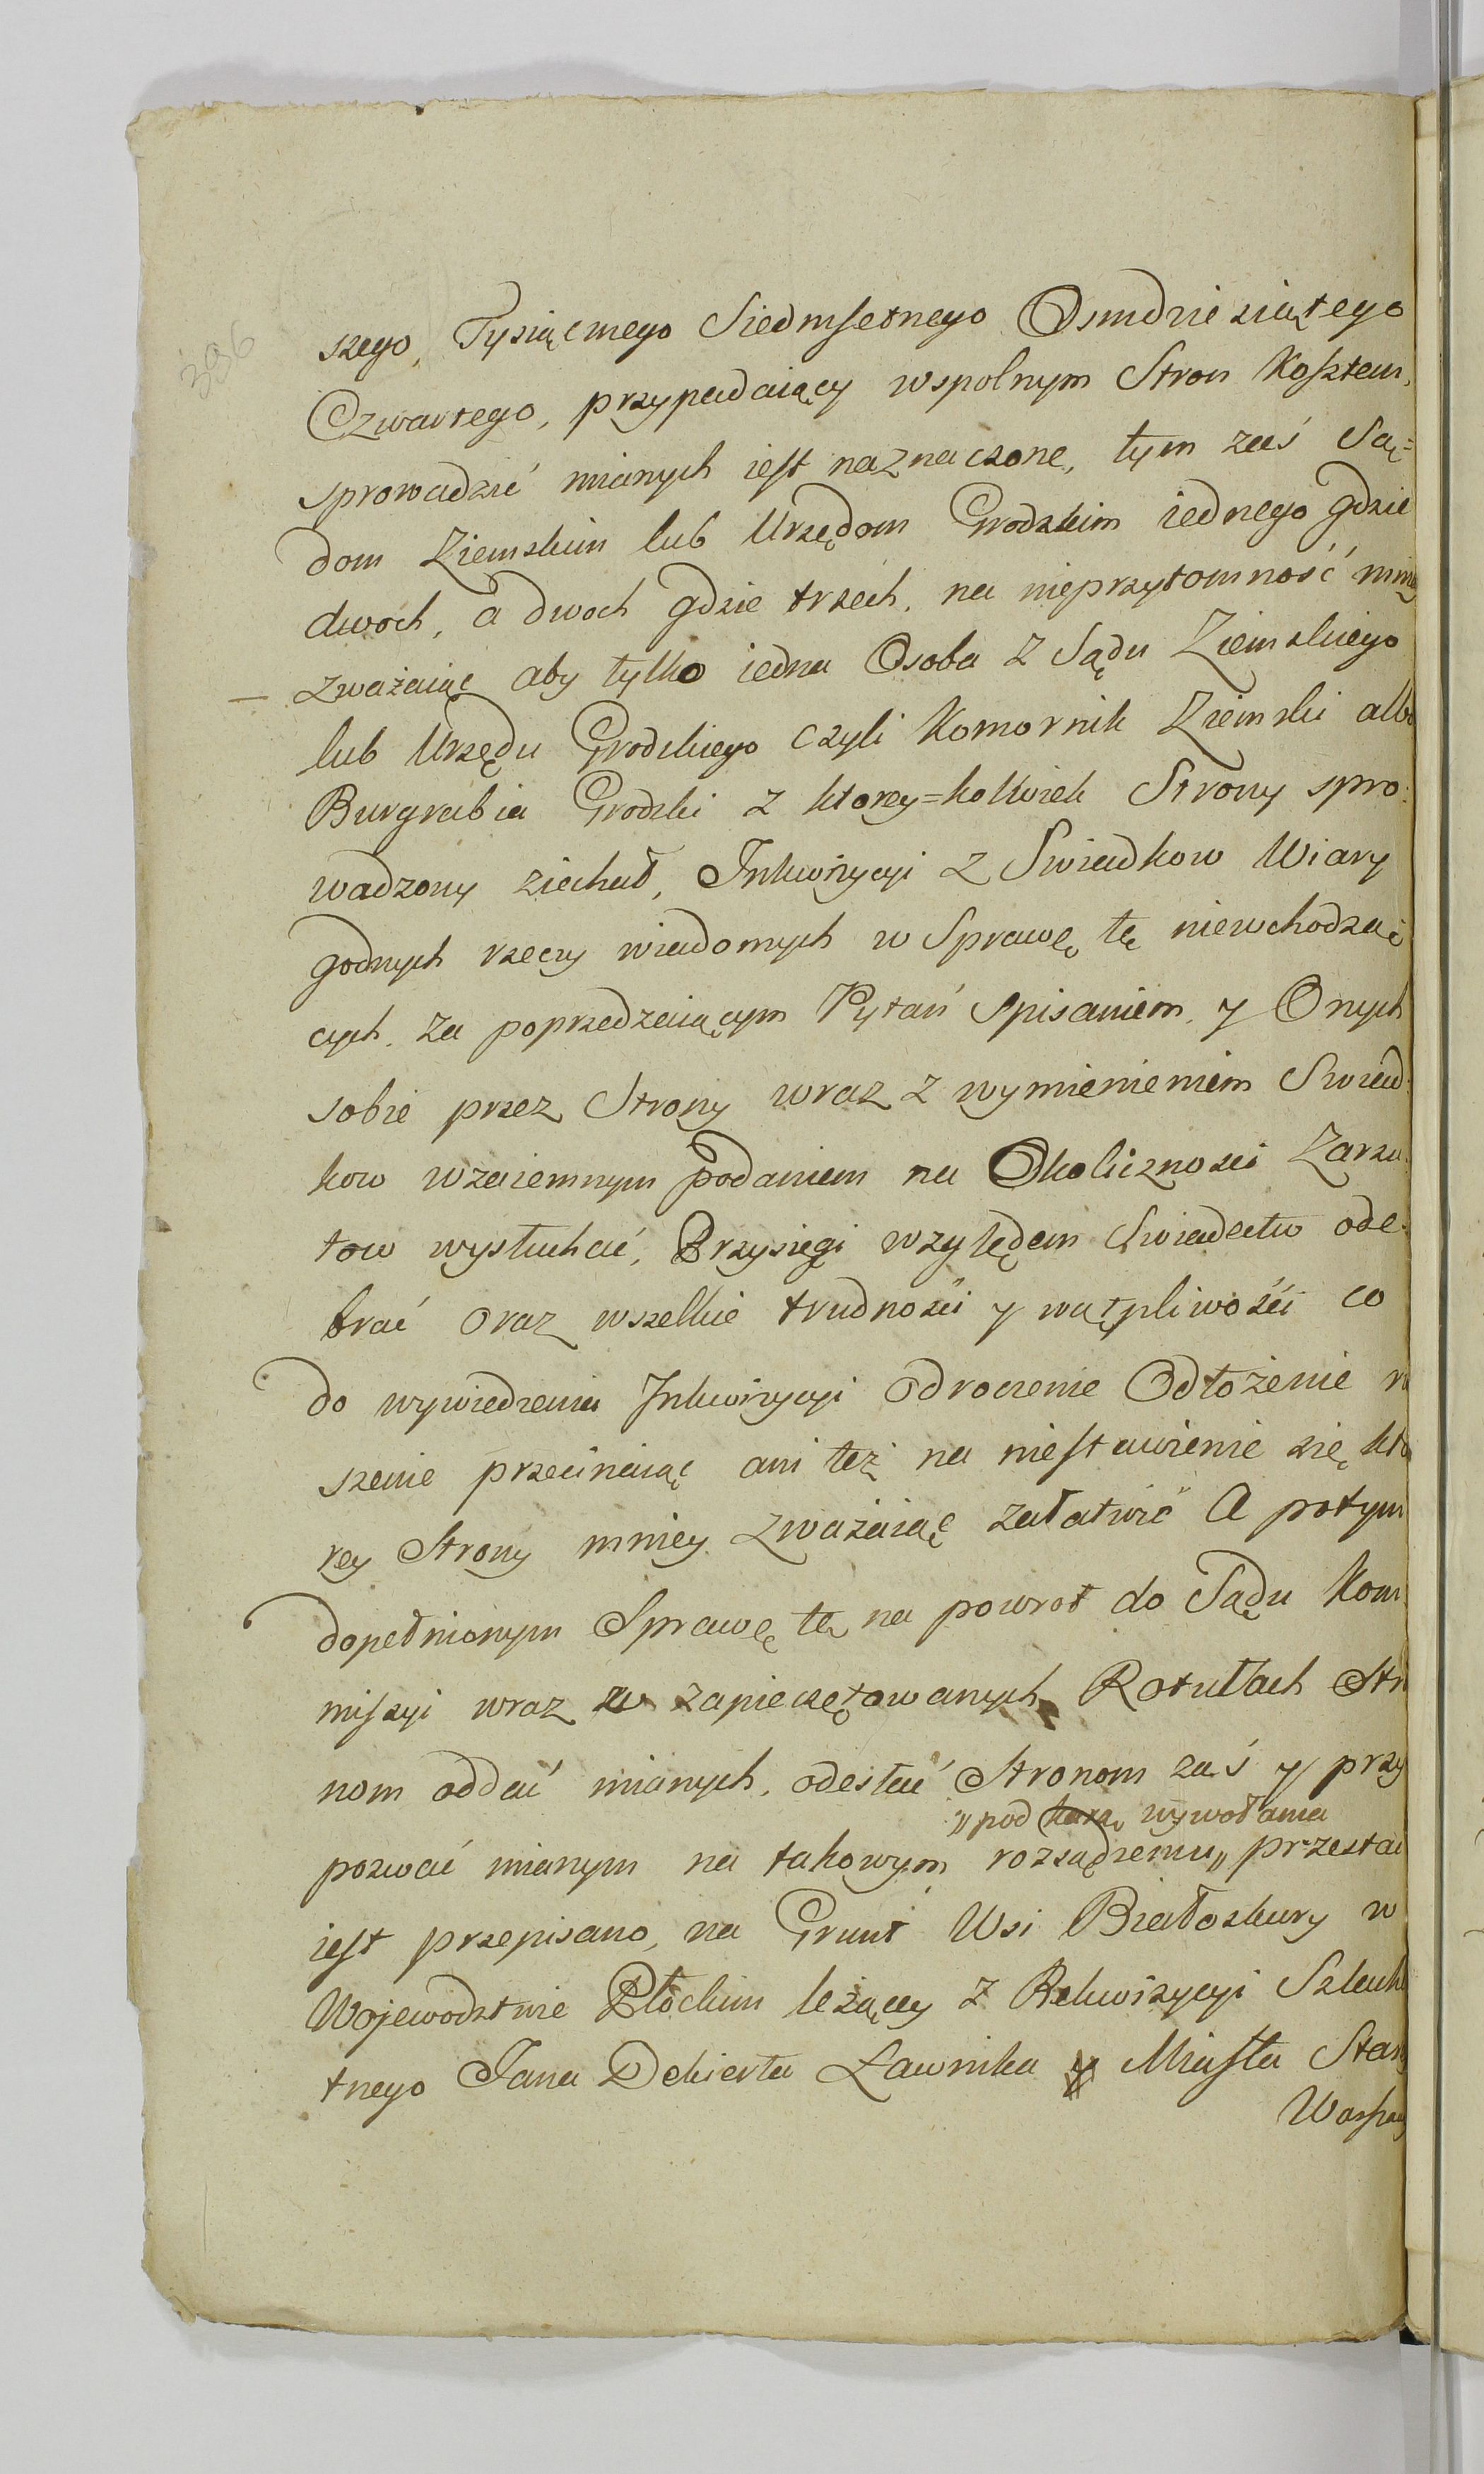 396
szego, Tysiącznego Siedmsetnego Osmdziesiątego
Czwartego, przypadaiący wspolnym Stron Kosztem,
sprowadzić mianych iest naznaczone, tym zaś Są=
dom Ziemskim lub Urzędom Grodzkim iednego gdzie
dwoch, a dwoch gdzie trzech, na nieprzytomność mniey
zważaiąc aby tylko iedna Osoba z Sądu Ziemskiego
lub Urzędu Grodzkiego czyli Komornik Ziemski albo
Burgrabia Grodzki z ktorey=kolwiek Strony spro:
wadzony ziechał, Inkwizycyi z Swiadkow Wiary
godnych rzeczy wiadomych w Sprawę tę niewchodzą:
cych, za poprzedzaiącym Pytań spisaniem, y Onych
sobie przez Strony wraz z wymienieniem Swiad:
kow wzaiemnym podaniem na Okoliczności Zarzu:
tow wysłuchać, Przysięgi względem Swiadectw ode:
brać oraz wszelkie trudności y wątpliwości co
do wywiedzenia Inkwizycyi odroczenie Odłożenie
szenie przecinaiąc ani też na niestawienie się kto
rey Strony mniey zważaiąc załatwić A potym
dopełnionym Sprawę tę na powrot do Sądu Kom
missyi wraz w zapieczętowanych Rotułach Stro
nom oddać mianych, odesłać Stronom zaś y przy
„pod karą wywołania
pozwać mianym na takowym rozsądzeniu„ przestać
iest przepisano, na Grunt Wsi Białoskury w
Wojewodztwie Płockim leżący z Rekwizycyi Szlache
tnego Jana Dekierta Ławnika Miasta Stary
Warszawy